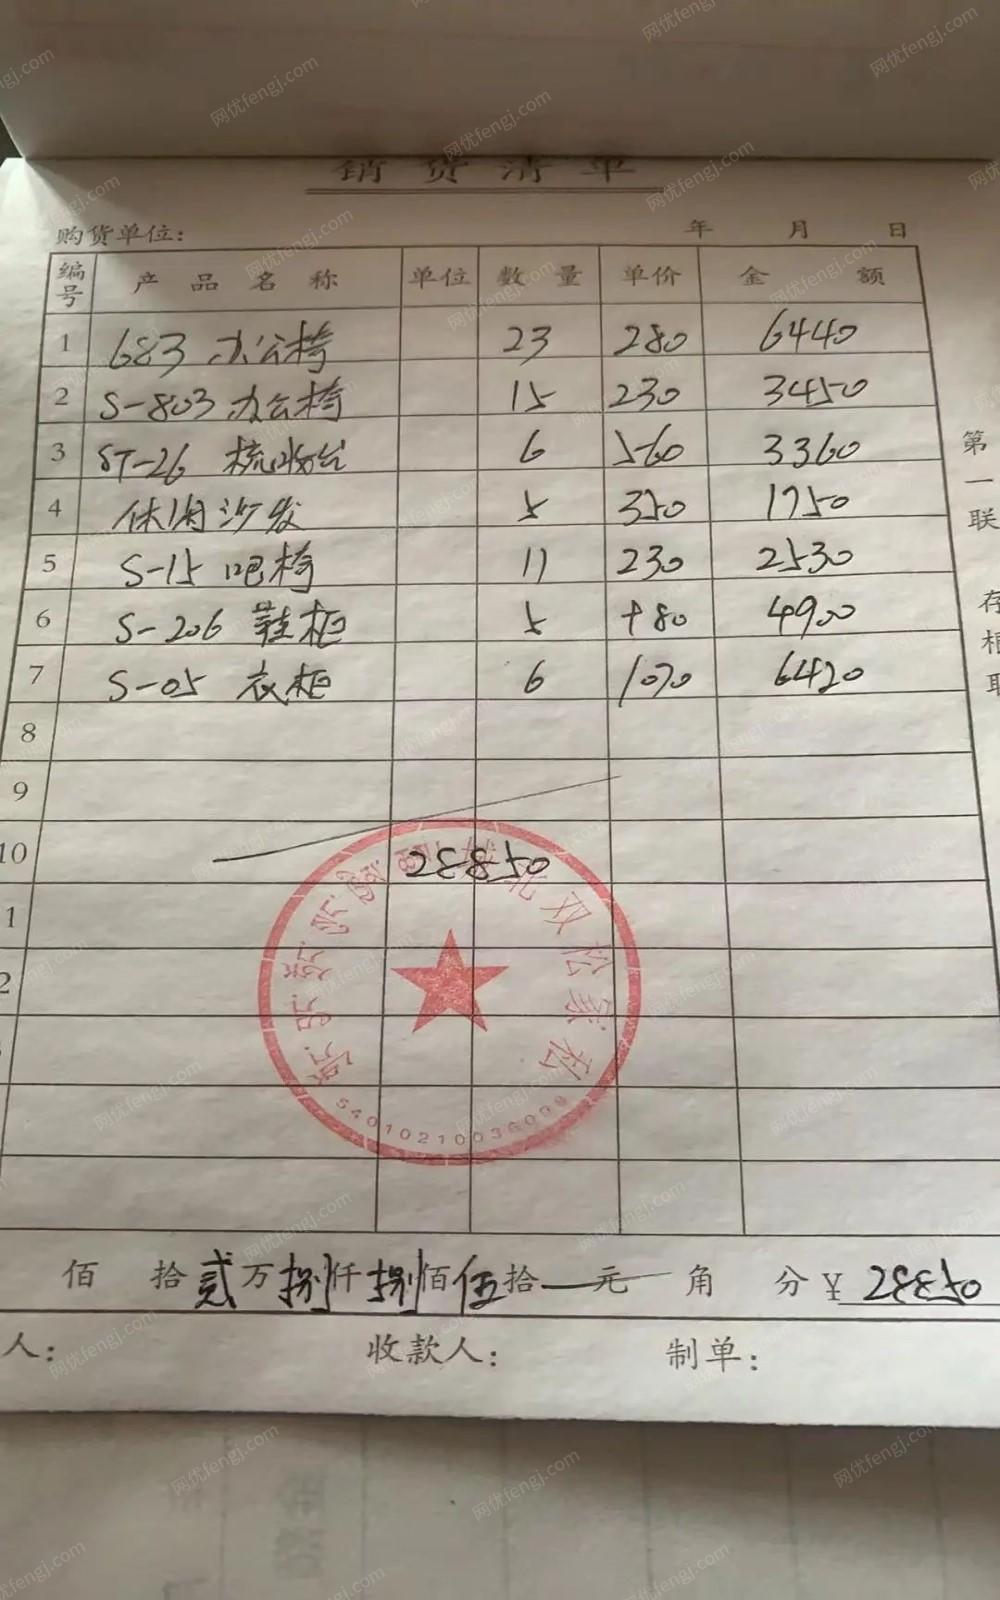 销货清单
购货单位: 年 月 日
编号 产品名称 单位 数量 单价 金额
1 683 办公椅 23 280 6440
2 S-803 办公椅 15 230 3450
3 ST-26 梳妆台 6 560 3360
4 休闲沙发 5 350 1750
5 S-15 吧椅 11 230 2530
6 S-206 鞋柜 5 980 4900
7 S-05 衣柜 6 1070 6420
8
9
10 28850
1
2
佰 拾 贰万捌仟捌佰伍拾 元 角 分 ¥ 28850
人: 收款人: 制单:
第一联
存根
双 松 家 私
网优fengj.com